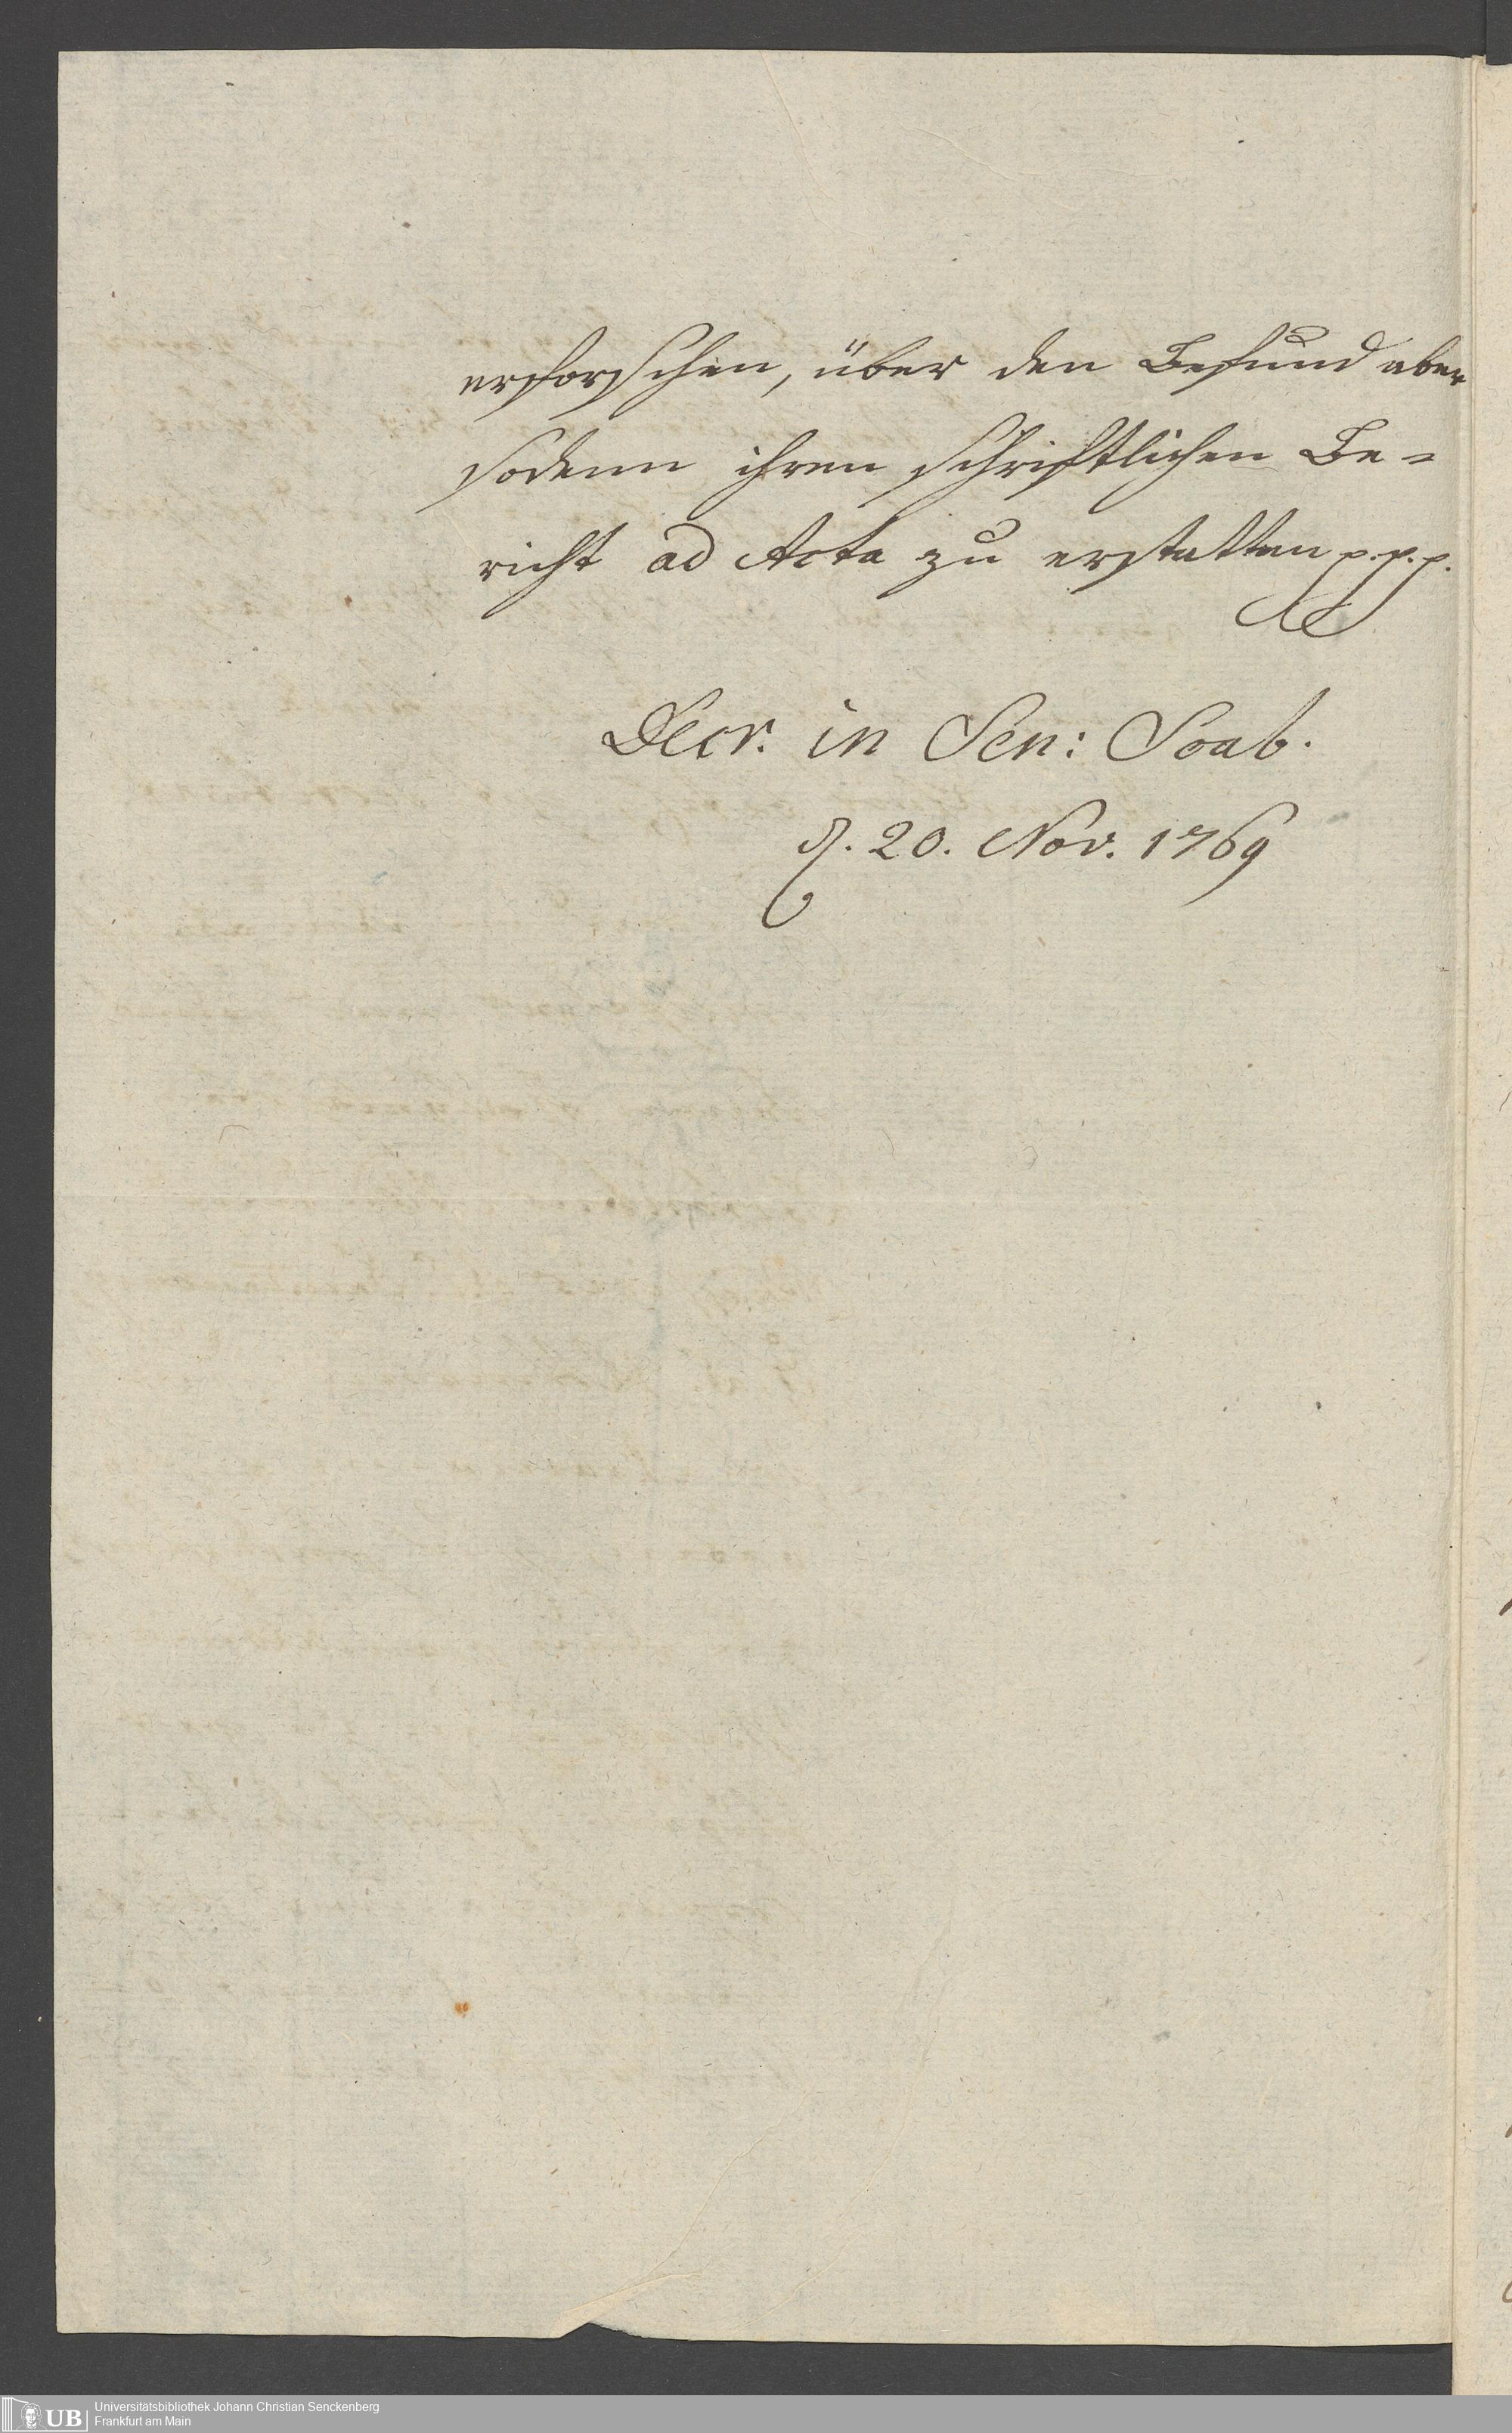 erforschen, über den Befund aber
sodenn ihren schriftlichen Be-
richt ad Acta zu erstatten p. p. p.
Decr. in Sen: Scab.
d. 20. Nov. 1769
UB
Universitätsbibliothek Johann Christian Senckenberg
Frankfurt am Main